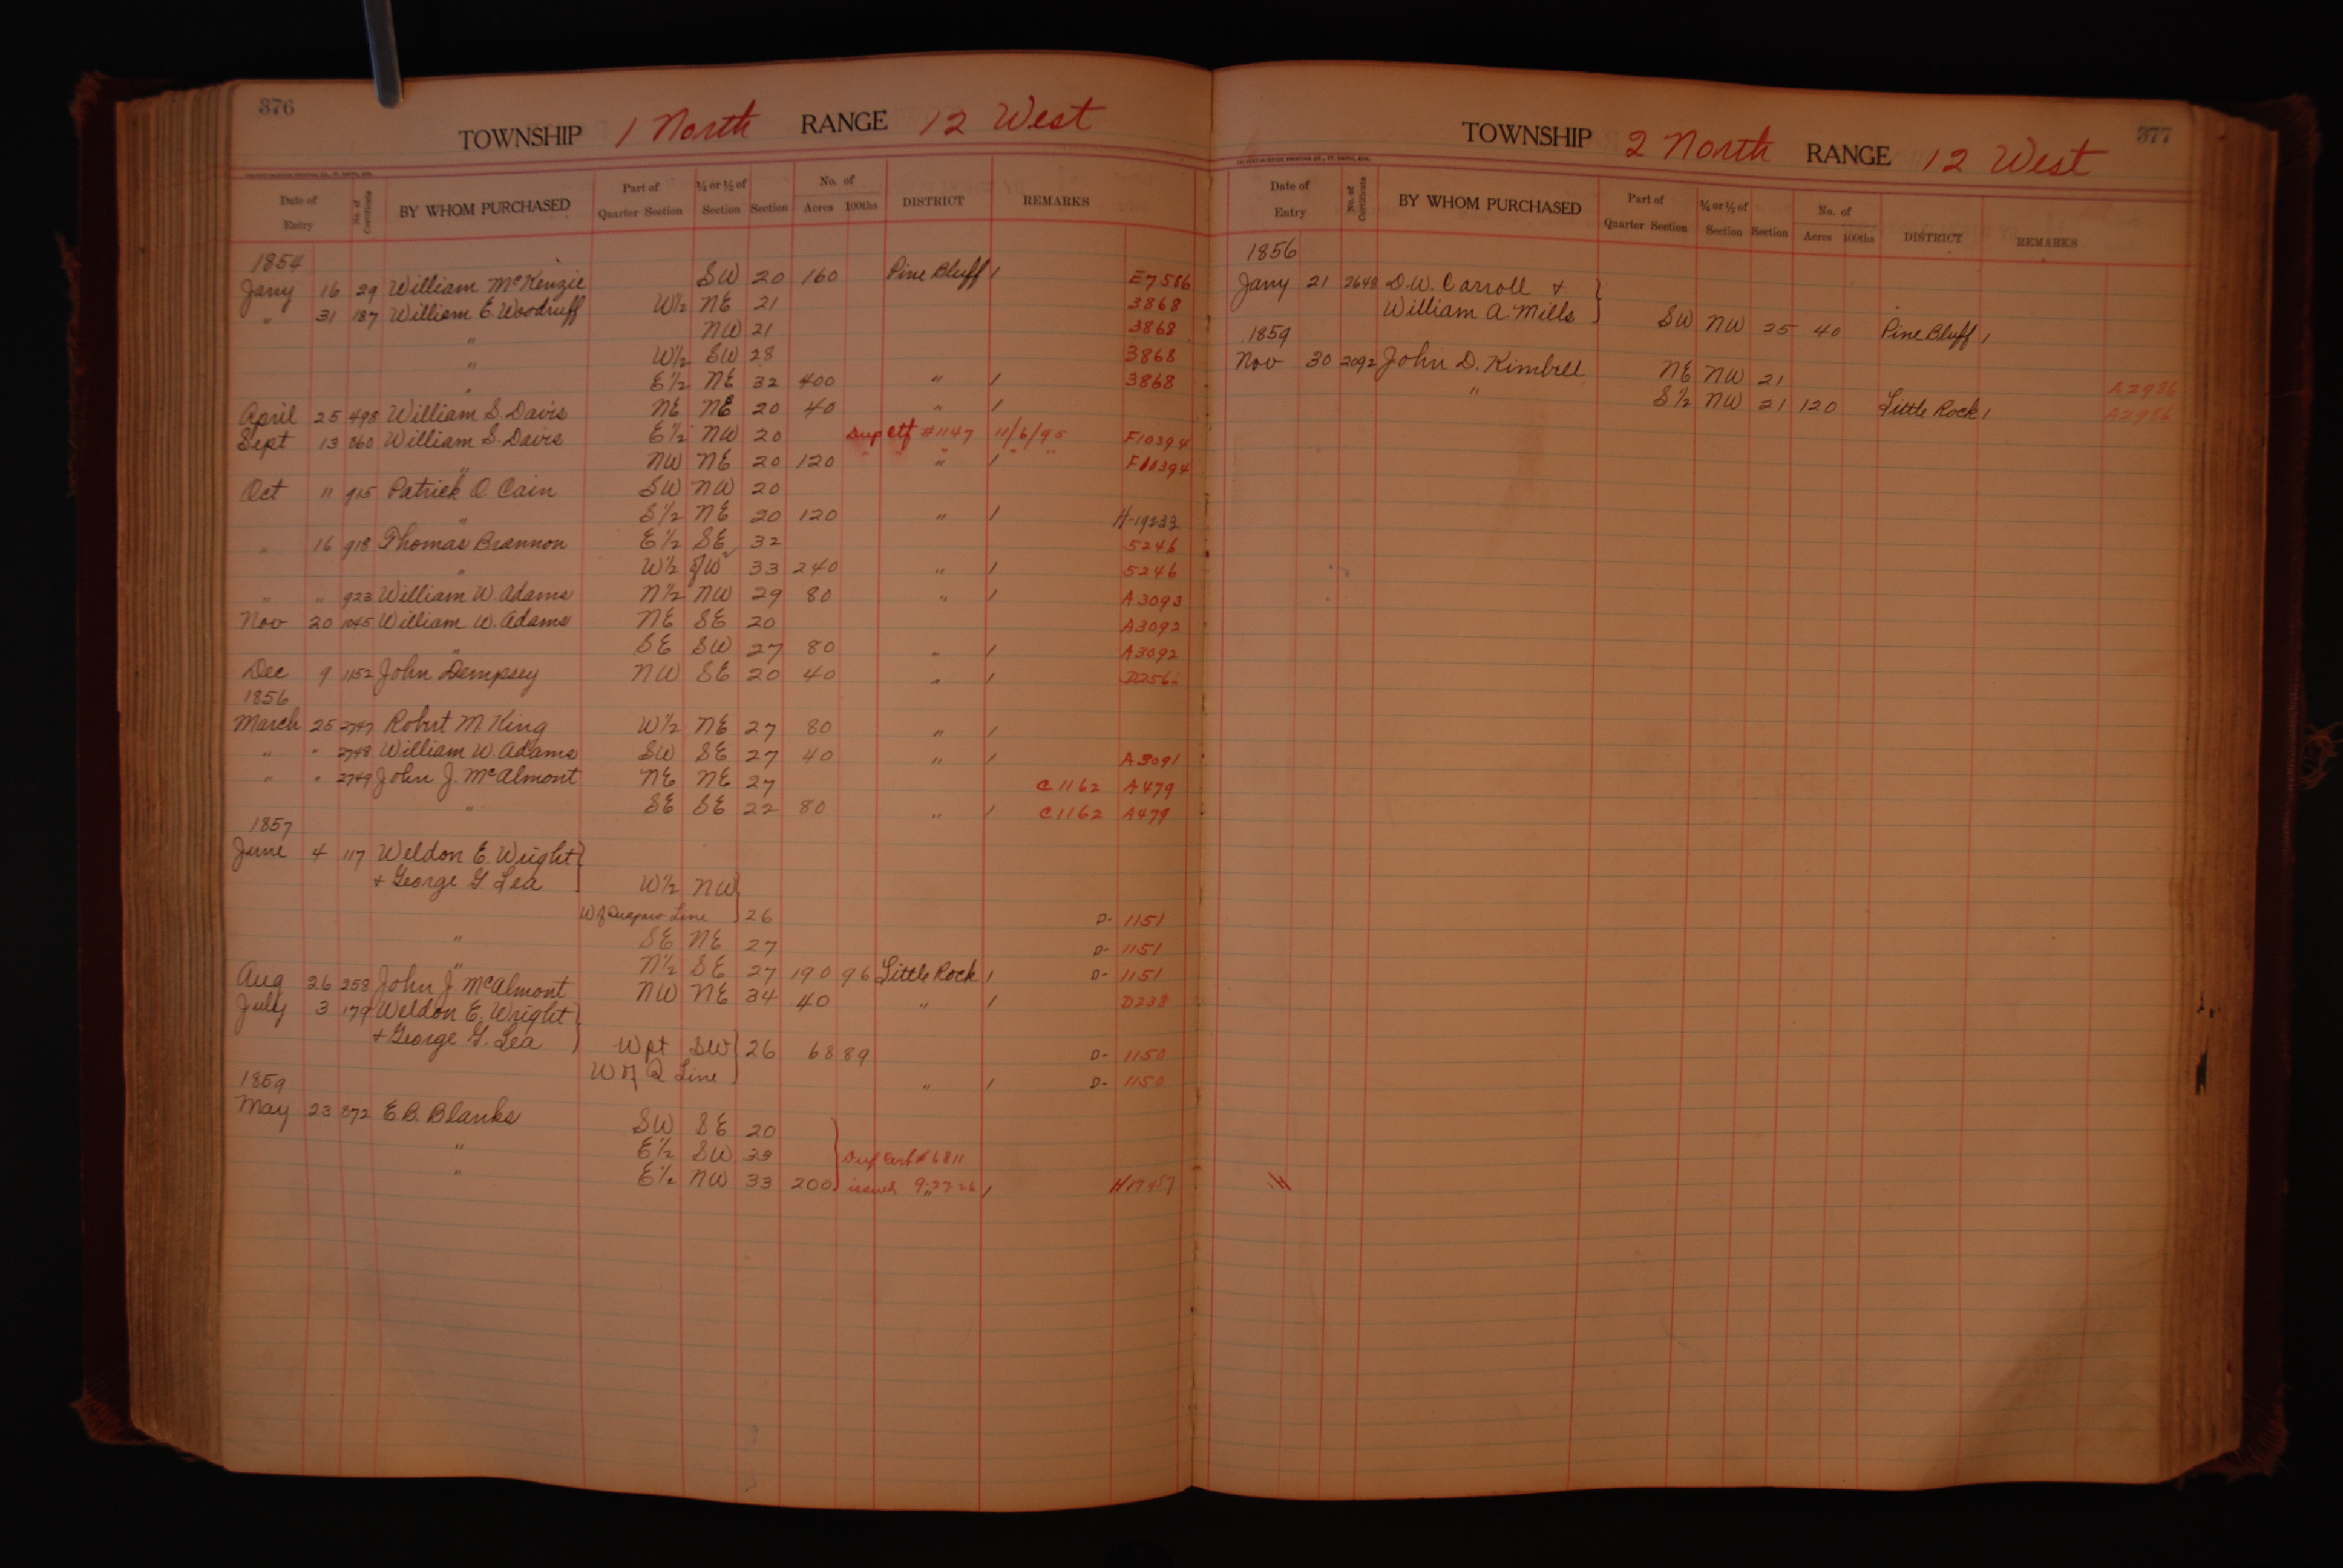 376
TOWNSHIP 1 North RANGE 12 West
Date of Entry No. of Certificate BY WHOM PURCHASED Part of Quarter Section ¼ or ½ of Section Section No. of Acres 100ths DISTRICT REMARKS
1854
Jany 16 29 William McKenzie SW 20 160 Pine Bluff / E7586
" 31 187 William E. Woodruff W½ NE 21 3868
" NW 21 3868
" W½ SW 28 3868
" E½ NE 32 400 " / 3868
April 25 498 William S. Davis NE NE 20 40 " /
Sept 13 860 William S. Davis E½ NW 20 Dup ctf #1147 11/6/95 F10394
" NW NE 20 120 " / F10394
Oct 11 915 Patrick O Cain SW NW 20
" S½ NE 20 120 " / H-19233
" 16 918 Thomas Brannon E½ SE 32 5246
" W½ 33 240 " / 5246
" " 923 William W. Adams N½ NW 29 80 " / A3093
Nov 20 1045 William W. Adams NE SE 20 A3092
" SE SW 27 80 " / A3092
Dec 9 1152 John Dempsey NW SE 20 40 " /
1856
March 25 2747 Robert M. King W½ NE 27 80 " /
" " 2748 William W. Adams SW SE 27 40 " / A3091
" " 2749 John J. McAlmont NE NE 27 C1162 A479
" SE SE 22 80 " / C1162 A479
1857
June 4 117 Weldon E. Wright
+ George G. Lea W½ NW
W of Quapaw Line 26 D- 1151
" SE NE 27 D- 1151
" N½ SE 27 190 96 Little Rock / D- 1151
Aug 26 258 John J. McAlmont NW NE 34 40 " / D238
July 3 179 Weldon E. Wright
+ George G. Lea W pt SW 26 68 89 D- 1150
W of Q Line " / D- 1150
1859
May 23 872 E.B. Blanks SW SE 20
" E½ SW 33 Dup Cert #6811
" E½ NW 33 200 issued 9-27-26 / H17457
377
TOWNSHIP 2 North RANGE 12 West
Date of Entry No. of Certificate BY WHOM PURCHASED Part of Quarter Section ¼ or ½ of Section Section No. of Acres 100ths DISTRICT REMARKS
1856
Jany 21 2648 D.W. Carroll +
William A. Mills SW NW 25 40 Pine Bluff /
1859
Nov 30 2092 John D. Kimbell NE NW 21 A2986
" S½ NW 21 120 Little Rock / A2986